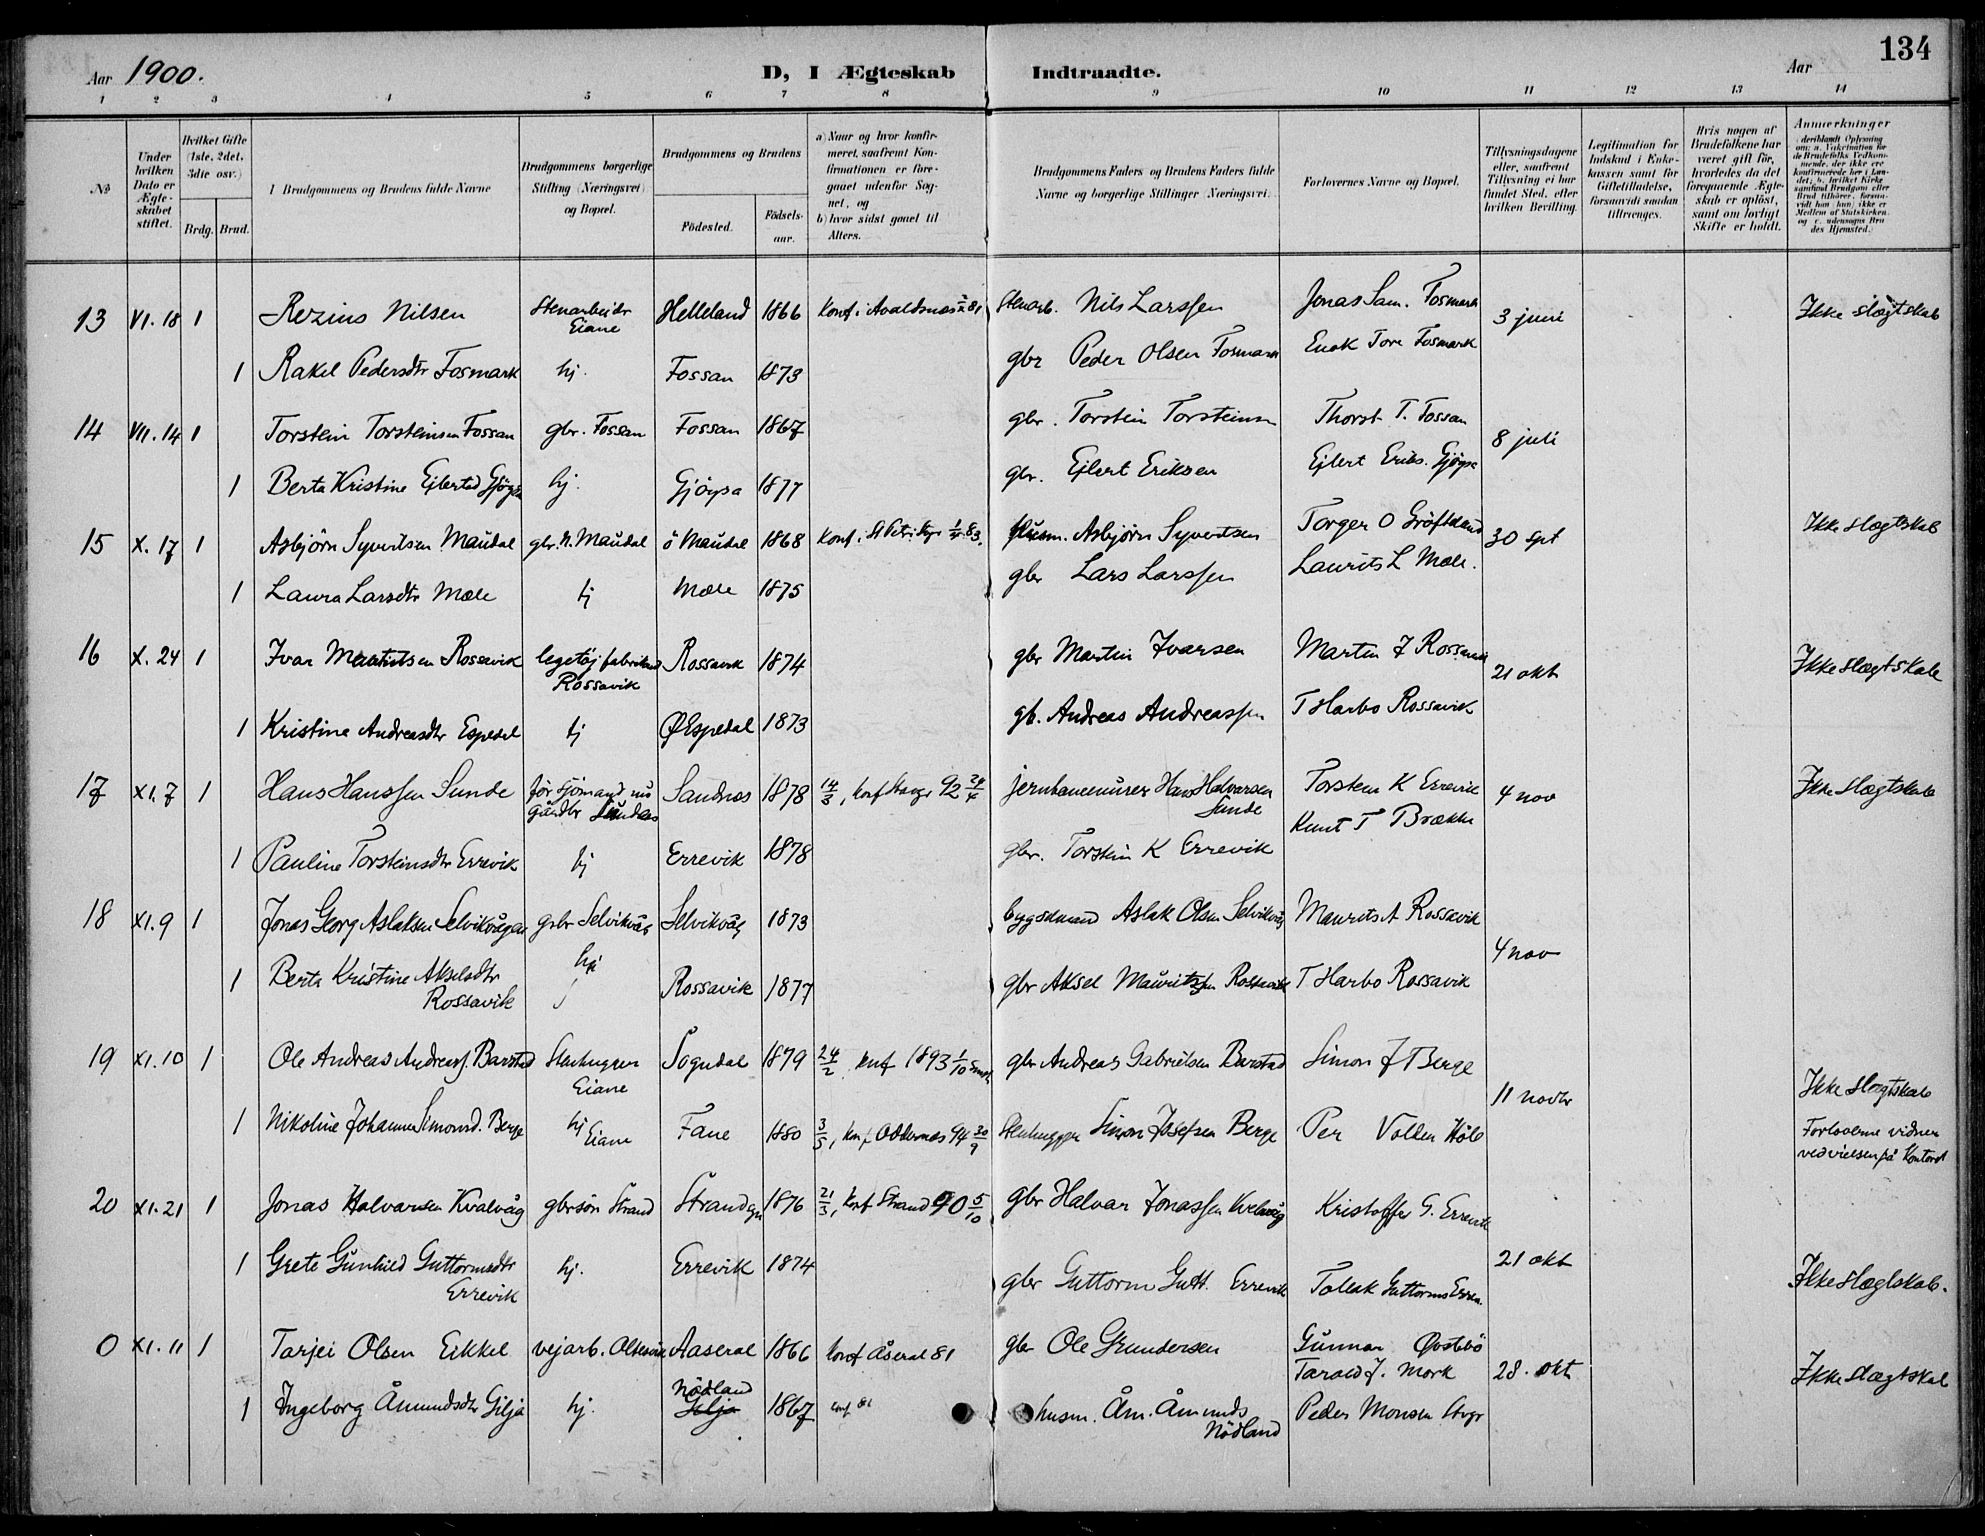 134
Aar 1900. D, I Ægteskab Indtraadte. Aar
1 2 3 4 5 6 7 8 9 10 11 12 13 14
No
Under hvilken Dato er Ægteskabet stiftet.
Hvilket Gifte (1ste, 2det, 3die osv.)
Brdg. Brud.
Brudgommens og Brudens fulde Navne
Brudgommens borgerlige Stilling (Næringsvei) og Bopæl.
Brudgommens og Brudens
Födested. Födselsaar.
a) Naar og hvor konfirmeret, saafremt Konfirmationen er foregaaet udenfor Sognet, og
b) hvor sidst gaaet til Alters.
Brudgommens Faders og Brudens Faders fulde Navne og borgerlige Stillinger (Næringsvei).
Forlovernes Navne og Bopæl.
Tillysningsdagene eller, saafremt Tillysning ei har fundet Sted, efter hvilken Bevilling.
Legitimation for Indskud i Enkekassen samt for Giftetilladelse, forsaavidt saadan tiltrænges.
Hvis nogen af Brudefolkene har været gift för, hvorledes da det foregaaende Ægteskab er oplöst, samt om lovligt Skifte er holdt.
Anmærkninger
13 VI. 18 1 Rezius Nilsen Stenarbeider Helleland 1866 Konf. i Avaldsnes 81 Stenarb. Nils Larssen Jonas Sam. Fosmark 3 juni Ikke slægtskab
Eiane
1 Rakel Pedersdtr Fosmark hj. Fossan 1873 gbr Peder Olsen Fosmark Enok Tore Fosmark
14 VII. 14 1 Torstein Torsteinsen Fossan gbr. Fossan Fossan 1867 gbr. Torstein Torsteinsen Thorst T. Fossan 8 juli
1 Berta Kristine Ejlertsd Gjøysa hj. Gjöysa 1877 gbr. Ejlert Eriksen Ejlert Eriks. Gjöysa
15 X. 17 1 Asbjörn Syvertsen Maudal gbr. N. Maudal ö Maudal 1868 Konf. i St Petri 83. Husm. Asbjörn Syvertsen Torger O 30 spt Ikke slægtskab
1 Laura Larsdtr Mæle hj Mæle 1875 gbr Lars Larssen Laurits L Mæle.
16 X. 24 1 Ivar Rossavik legetøjfabrikant Rossavik 1874 gbr Martin Ivarsen Martin I Rossavik 21 okt Ikke slægtskab
Rossavik
1 Kristine Andreasdtr Espedal hj Ø Espedal 1873 gb. Andreas Andreassen T Harbo Rossavik
17 XI. 7 1 Hans Hanssen Sunde för sjömand nu Sandnes 1878 14/3, konf 92 24/4 Hans Halvarsen Torstein K Errevik 4 nov Ikke slægtskab
Sunde
Knut T Brække
1 Pauline Torsteinsdtr Errevik hj Errevik 1878 gbr. Torstein K Errevik
18 XI. 9 1 Jonas Georg Aslaksen Selvikvågen gsbr Selvikvåg Selvikvåg 1873 bygdmand Aslak Olsen Selvikvåg Maurits A Rossavik 4 nov
1 Berta Kristine Akselsdtr hj Rossavik 1877 gbr Aksel Mauritssen Rossavik T Harbo Rossavik
Rossavik
19 XI. 10 1 Ole Andreas Andreass. Barstad Stenhugger Sogndal 1879 24/2 konf 1893 1/10 gbr Andreas Gabrielsen Barstad Simon J Berge 11 novbr Ikke slægtskab
Eiane
1 Nikoline Johanne Simonsd. Berge hj Eiane Fane 1880 3/5, konf Oddernes 94 30/9 Stenhugger Simon Josefsen Berge Per Volden Høle Forloverne vidner
ved vielsen på Kontoret
20 XI. 21 1 Jonas Halvarsen Kvalvåg gbrsön Strand Strand 1876 21/3, konf Strand 90 5/10 gbr Halvar Jonassen Kvalvåg Kristoffer G. Errevik 21 okt Ikke slægtskab.
1 Grete Gunhild Guttormsdtr hj. Errevik 1874 gbr Guttorm Gutt. Errevik Tollak Guttorms Errev.
Errevik
0 XI. 11 1 Tarjei Olsen Eikkel vejarb. Oltesvik Aaseral 1866 konf Åseral 81 gbr Ole Gundersen Gunnar Östebö 28. okt Ikke slægtskab
Tarald J. Mork
1 Ingeborg Åmundsdtr Gilja hj. Nödland Gilja 1867 konf 81 husm. Åm. Åmunds Peder Monsen
Nödland